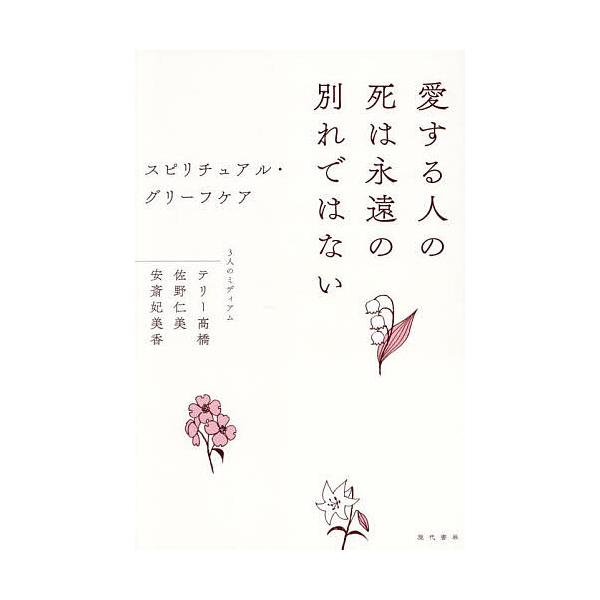 愛する人の
死は永遠の
別れではない
スピリチュアル・
グリーフケア
3人のミディアム
テリー髙橋
佐野仁美
安斎妃美香
現代書林